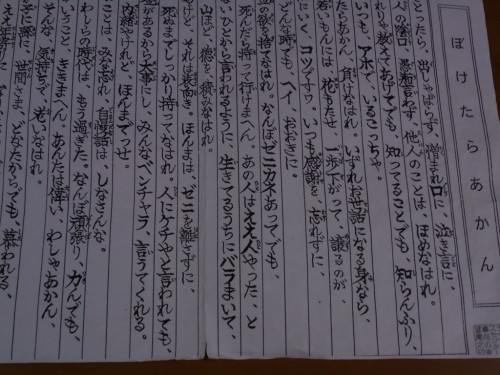 ぼけたらあかん
とったら、出しゃばらず、憎まれ口に、泣き言に、
人の陰口、愚痴言わず、他人のことは、ほめなはれ。
りゃ教えてあげても、知ってることでも、知らんふり、
いつも、アホで、いるこっちゃ。
たらあかん、負けなはれ。いずれお世話になる身なら、
若いもんには花もたせ、一歩下がって、譲るのが、
いく、コツですわ。いつも感謝を、忘れずに、
どんな時でも、ヘイ、おおきに。
の欲を捨てなはれ。なんぼゼニカネあってても、
死んだら持って行けまへん。あの人はええ人やった、と
いひとから言われるように、生きてるうちにバラまいて、
山ほど、徳を、積みなはれ。
けど、それは表向き。ほんまは、ゼニを離さずに、
死ぬまでしっかり持ってなはれ。人にケチやと言われても、
があるから大事にし、みんな、ベンチャラ、言うてくれる。
内緒やけれど、ほんまでっせ。
ことは、みな忘れ、自慢話は、しなさんな。
わしらの時代は、もう過ぎた。なんぼ頑張り、力んでも、
いうこと、ききまへん。あんたは偉い、わしゃあかん、
そんな気持ちで、老いなはれ。
に、世間さま、どなたからでも、慕われる、